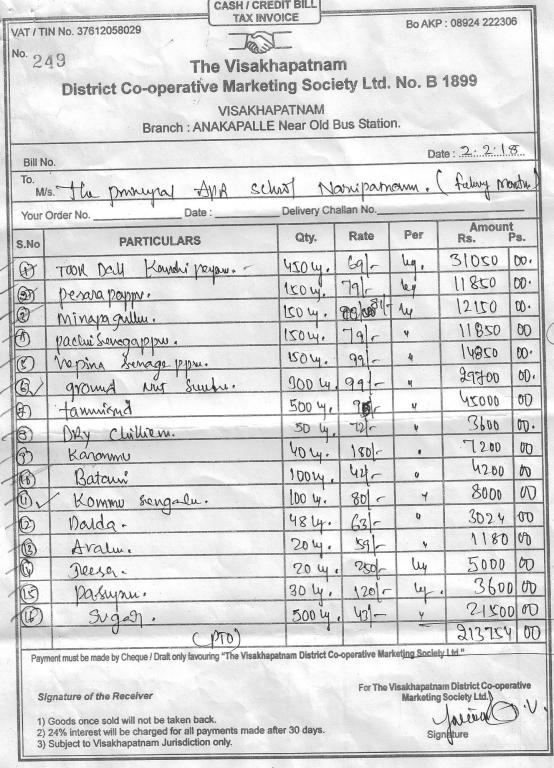 CASH / CREDIT BILL
TAX INVOICE
VAT / TIN No. 37612058029
Bo AKP : 08924 222306
No. 249
The Visakhapatnam
District Co-operative Marketing Society Ltd. No. B 1899
VISAKHAPATNAM
Branch : ANAKAPALLE Near Old Bus Station.
Bill No.
Date : 2.2.18
To.
M/s. The principal APR School Narsipatnam.
Your Order No. Date : Delivery Challan No.
S.No PARTICULARS Qty. Rate Per Amount Rs. Ps.
1 Toor Dall 450 69/- kg. 31050 00.
2 pesarapappu. 150 79/- kg 11850 00.
3 minapagullu. 150 81/- kg 12150 00.
4 pachisenagappu. 150 79/- " 11850 00
5 150 99/- " 14850 00.
6 ground nut 300 99/- " 29700 00.
7 500 " 45000 00
8 Dry chillies. 50 72/- " 3600 00.
9 40 180/- " 7200 00
10 Batani 100 42/- " 4200 00
11 Kommu sengalu. 100 80/- " 8000 00
12 Dalda. 48 63/- " 3024 00
13 Avalu. 20 59/- " 1180 00
14 Jeera. 20 250/- kg 5000 00
15 Pasupu. 30 120/- kg. 3600 00
16 Sugar. 500 43/- " 21500 00
(PTO) 213754 00
Payment must be made by Cheque / Draft only favouring "The Visakhapatnam District Co-operative Marketing Society Ltd."
For The Visakhapatnam District Co-operative
Marketing Society Ltd.
Signature of the Receiver
Signature
1) Goods once sold will not be taken back.
2) 24% interest will be charged for all payments made after 30 days.
3) Subject to Visakhapatnam Jurisdiction only.